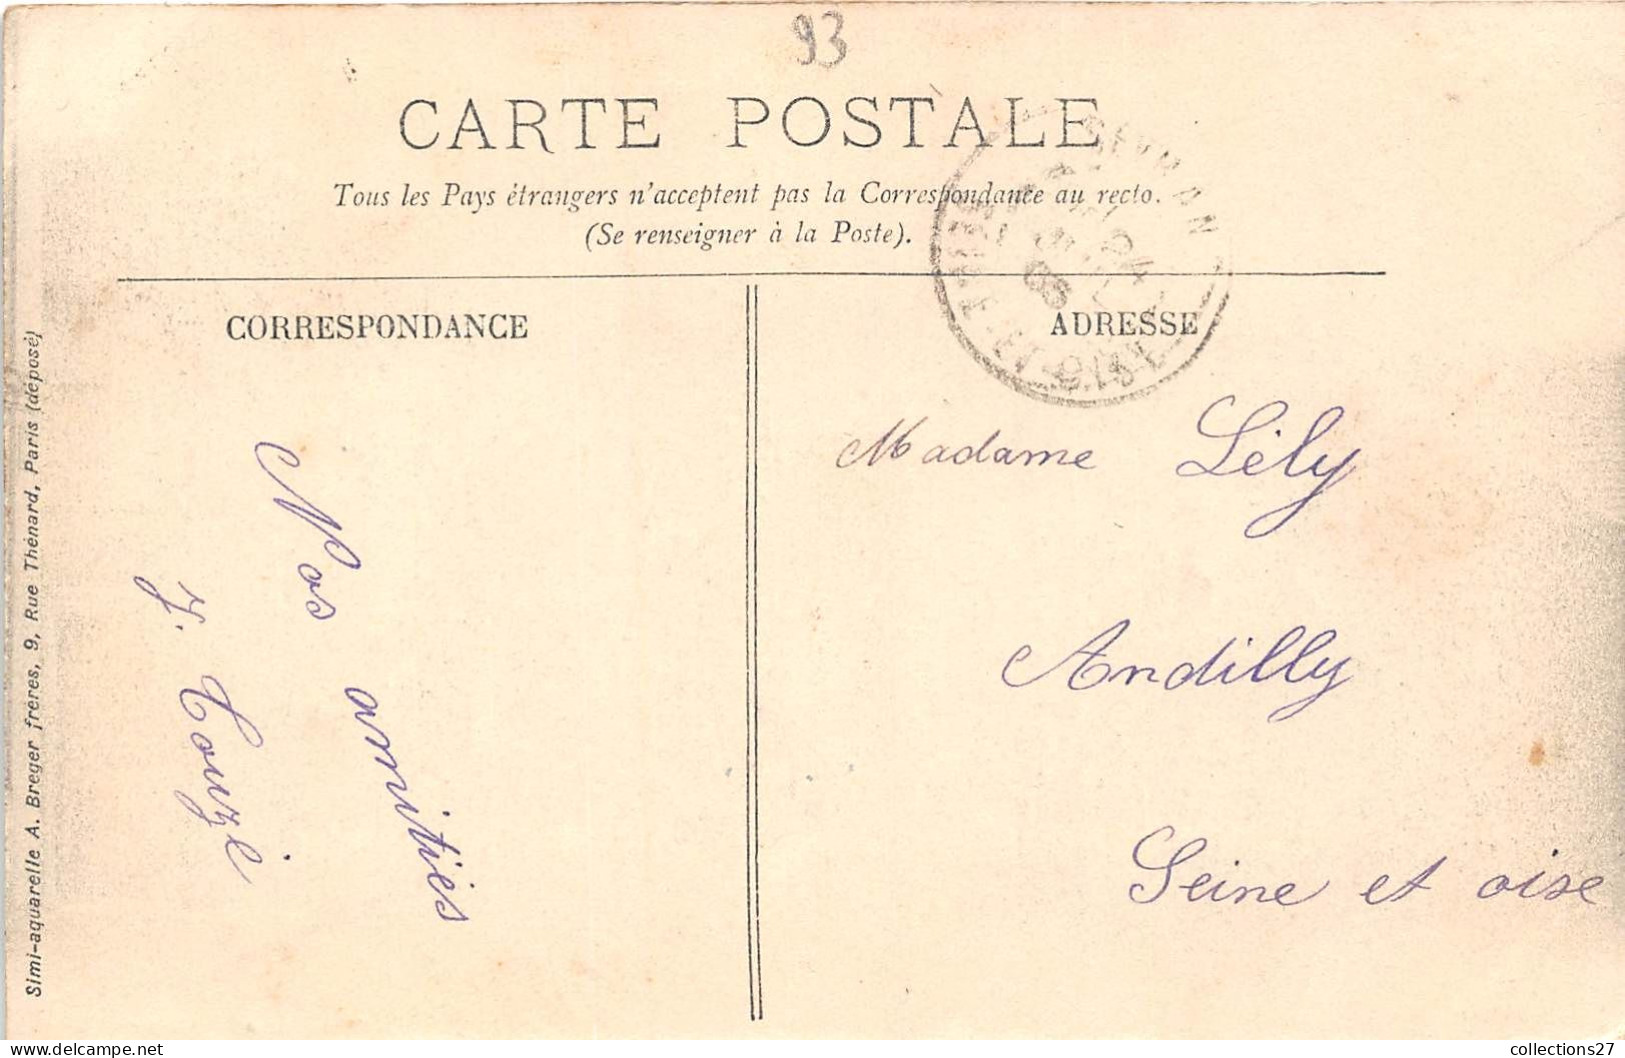 93
CARTE POSTALE
Tous les Pays étrangers n'acceptent pas la Correspondance au recto.
(Se renseigner à la Poste).
CORRESPONDANCE
Nos amitiés
J. Touzé
ADRESSE
Madame Lély
Andilly
Seine et oise
SEINE-ET-OISE
Simi-aquarelle A. Breger frères, 9, Rue Thénard, Paris (déposé)
delcampe.net
collections27